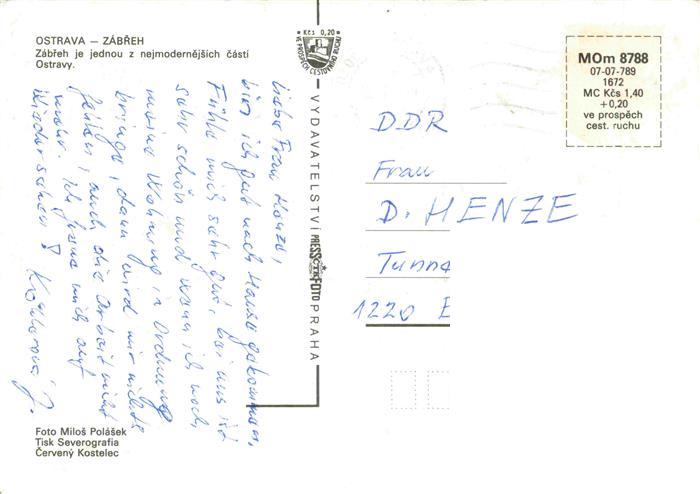 OSTRAVA – ZÁBŘEH
Zábřeh je jednou z nejmodernějších částí
Ostravy.
Liebe Frau Henze,
bin ich gut nach Hause gekommen,
Fühle mich sehr gut, bei uns ist
sehr schön und wenn ich noch
meine Wohnung in Ordnung
bringe, dann wird mir nichts
fehlen, auch die Arbeit nicht
mehr. Ich freue mich auf
Wiedersehen!
Foto Miloš Polášek
Tisk Severografia
Červený Kostelec
Kčs 0,20
VE PROSPĚCH CESTOVNÍHO RUCHU
VYDAVATELSTVÍ PRESSFOTO PRAHA
MOm 8788
07-07-789
1672
MC Kčs 1,40
+0,20
ve prospěch
cest. ruchu
DDR
Frau
D. HENZE
Tunna
1220 E